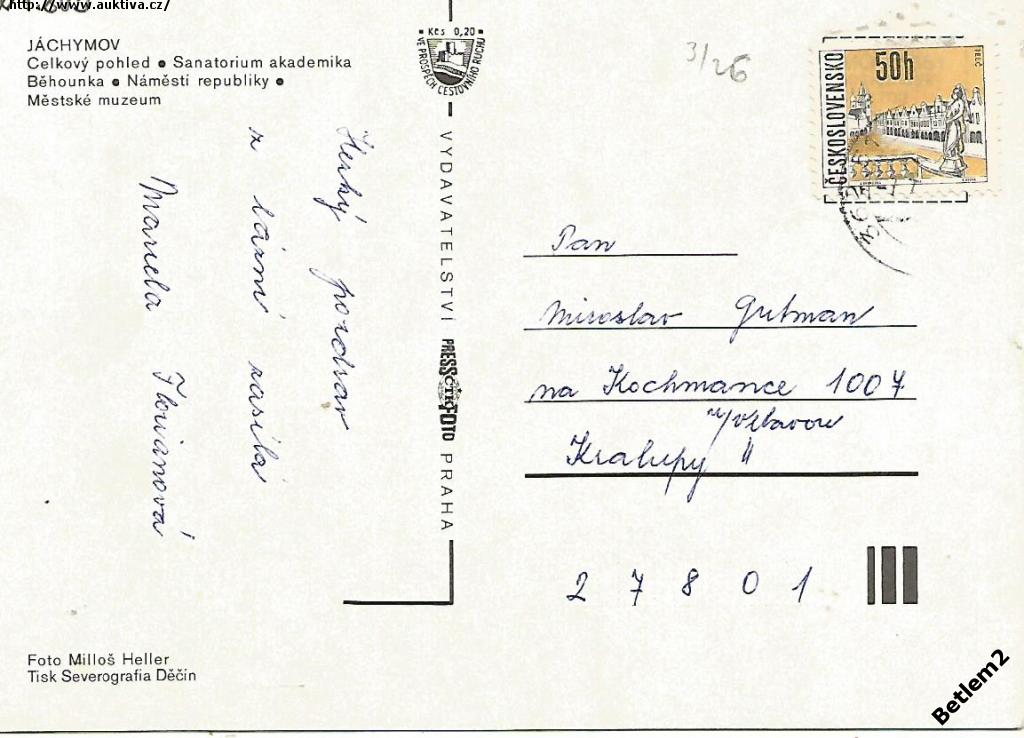 http://www.auktiva.cz/
JÁCHYMOV
Celkový pohled • Sanatorium akademika
Běhounka • Náměstí republiky •
Městské muzeum
Kčs 0,20
VE PROSPĚCH CESTOVNÍHO RUCHU
3/26
ČESKOSLOVENSKO
50h
TELČ
Hezký pozdrav
z lázní zasílá
Marcela Florianová
VYDAVATELSTVÍ PRESSFOTO PRAHA
ČTK
Pan
Miroslav Gutman
na Kochmance 1007
n/Vltavou
Kralupy "
27801
Foto Milloš Heller
Tisk Severografia Děčín
Betlem2